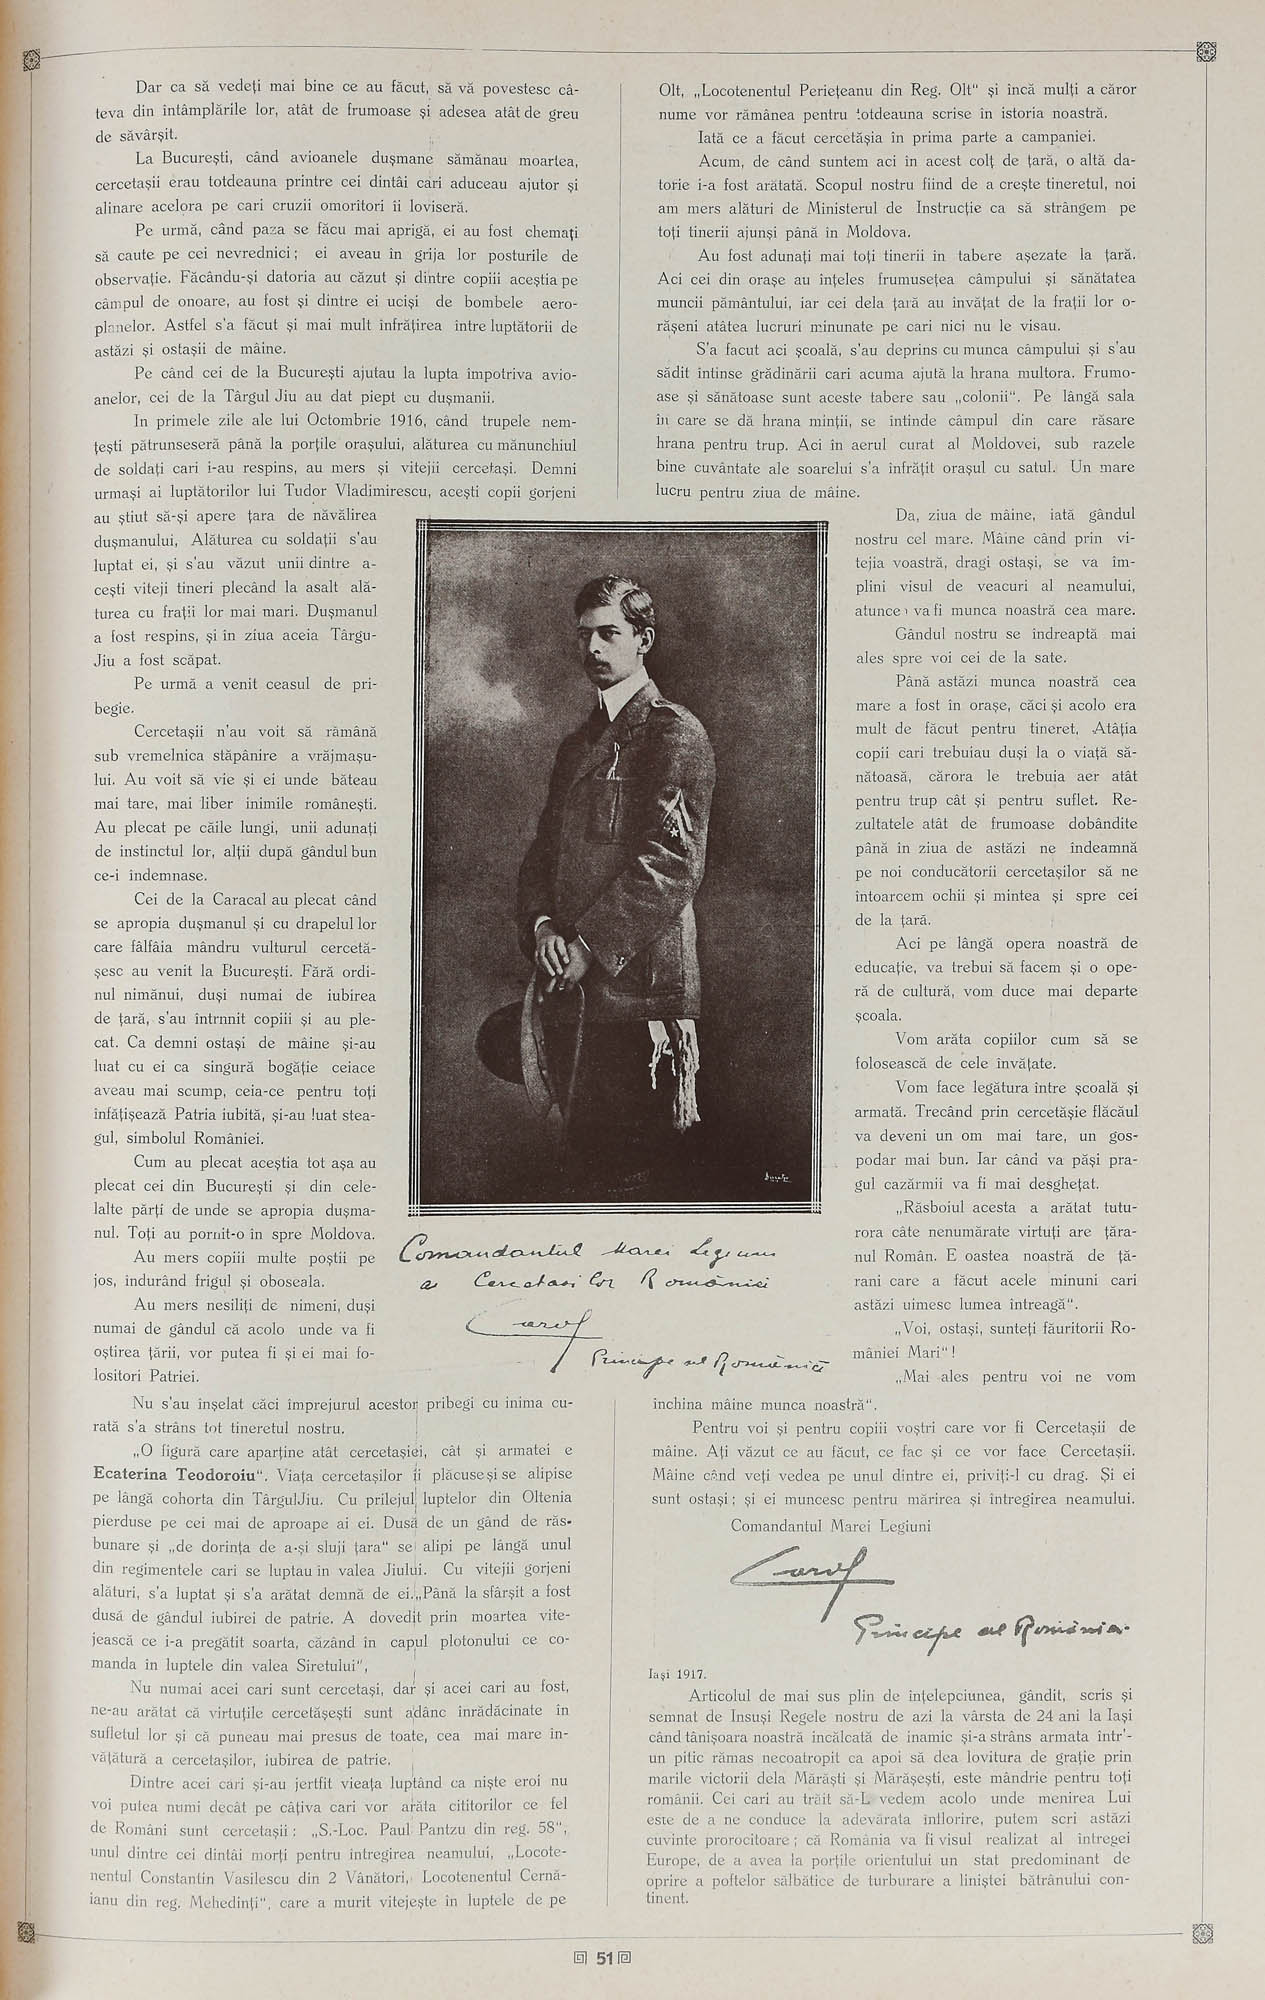 Dar ca să vedeți mai bine ce au făcut, să vă povestesc câ-
teva din întâmplările lor, atât de frumoase și adesea atât de greu
de săvârșit.
La București, când avioanele dușmane sămănau moartea,
cercetașii erau totdeauna printre cei dintâi cari aduceau ajutor și
alinare acelora pe cari cruzii omoritori ii loviseră.
Pe urmă, când paza se făcu mai aprigă, ei au fost chemați
să caute pe cei nevrednici; ei aveau în grija lor posturile de
observație. Făcându-și datoria au căzut și dintre copiii aceștia pe
câmpul de onoare, au fost și dintre ei uciși de bombele aero-
planelor. Astfel s'a făcut și mai mult înfrățirea intre luptătorii de
astăzi și ostașii de mâine.
Pe când cei de la București ajutau la lupta impotriva avio-
anelor, cei de la Târgul Jiu au dat piept cu dușmanii.
In primele zile ale lui Octombrie 1916, când trupele nem-
țești pătrunseseră până la porțile orașului, alăturea cu mănunchiul
de soldați cari i-au respins, au mers și vitejii cercetași. Demni
urmași ai luptătorilor lui Tudor Vladimirescu, acești copii gorjeni
au știut să-și apere țara de năvălirea
dușmanului, Alăturea cu soldații s'au
luptat ei, și s'au văzut unii dintre a-
cești viteji tineri plecând la asalt ală-
turea cu frații lor mai mari. Dușmanul
a fost respins, și în ziua aceia Târgu-
Jiu a fost scăpat.
Pe urmă a venit ceasul de pri-
begie.
Cercetașii n'au voit să rămână
sub vremelnica stăpânire a vrăjmașu-
lui. Au voit să vie și ei unde băteau
mai tare, mai liber inimile românești.
Au plecat pe căile lungi, unii adunați
de instinctul lor, alții după gândul bun
ce-i îndemnase.
Cei de la Caracal au plecat când
se apropia dușmanul și cu drapelul lor
care fâlfâia mândru vulturul cercetă-
șesc au venit la București. Fără ordi-
nul nimănui, duși numai de iubirea
de țară, s'au întrnnit copiii și au ple-
cat. Ca demni ostași de mâine și-au
luat cu ei ca singură bogăție ceiace
aveau mai scump, ceia-ce pentru toți
înfățișează Patria iubită, și-au luat stea-
gul, simbolul României.
Cum au plecat aceștia tot așa au
plecat cei din București și din cele-
lalte părți de unde se apropia dușma-
nul. Toți au pornit-o în spre Moldova.
Au mers copiii multe poștii pe
jos, indurând frigul și oboseala.
Au mers nesiliți de nimeni, duși
numai de gândul că acolo unde va fi
oștirea țării, vor putea fi și ei mai fo-
lositori Patriei.
Nu s'au înșelat căci împrejurul acestor pribegi cu inima cu-
rată s'a strâns tot tineretul nostru.
„O figură care aparține atât cercetașiei, cât și armatei e
Ecaterina Teodoroiu“. Viața cercetașilor ți plăcuse și se alipise
pe lângă cohorta din TârgulJiu. Cu prilejul luptelor din Oltenia
pierduse pe cei mai de aproape ai ei. Dusă de un gând de răs-
bunare și „de dorința de a-și sluji țara“ se alipi pe lângă unul
din regimentele cari se luptau in valea Jiului. Cu vitejii gorjeni
alături, s'a luptat și s'a arătat demnă de ei. „Până la sfârșit a fost
dusă de gândul iubirei de patrie. A dovedit prin moartea vite-
jească ce i-a pregătit soarta, căzând în capul plotonului ce co-
manda in luptele din valea Siretului“,
Nu numai acei cari sunt cercetași, dar și acei cari au fost,
ne-au arătat că virtuțile cercetășești sunt adânc inrădăcinate in
sufletul lor și că puneau mai presus de toate, cea mai mare in-
vățătură a cercetașilor, iubirea de patrie.
Dintre acei cari și-au jertfit vieața luptând ca niște eroi nu
voi putea numi decât pe câțiva cari vor arăta cititorilor ce fel
de Români sunt cercetașii: „S.-Loc. Paul Pantzu din reg. 58“,
unul dintre cei dintâi morți pentru intregirea neamului, „Locote-
nentul Constantin Vasilescu din 2 Vânători, Locotenentul Cernă-
ianu din reg. Mehedinți“, care a murit vitejește în luptele de pe
Olt, „Locotenentul Periețeanu din Reg. Olt“ și încă mulți a căror
nume vor rămânea pentru totdeauna scrise în istoria noastră.
Iată ce a făcut cercetășia in prima parte a campaniei.
Acum, de când suntem aci in acest colț de țară, o altă da-
torie i-a fost arătată. Scopul nostru fiind de a crește tineretul, noi
am mers alături de Ministerul de Instrucție ca să strângem pe
toți tinerii ajunși până in Moldova.
Au fost adunați mai toți tinerii in tabere așezate la țară.
Aci cei din orașe au ințeles frumusețea câmpului și sănătatea
muncii pământului, iar cei dela țară au învățat de la frații lor o-
rășeni atâtea lucruri minunate pe cari nici nu le visau.
S'a facut aci școală, s'au deprins cu munca câmpului și s'au
sădit întinse grădinării cari acuma ajută la hrana multora. Frumo-
ase și sănătoase sunt aceste tabere sau „colonii“. Pe lângă sala
in care se dă hrana minții, se intinde câmpul din care răsare
hrana pentru trup. Aci în aerul curat al Moldovei, sub razele
bine cuvântate ale soarelui s'a infrățit orașul cu satul. Un mare
lucru pentru ziua de mâine.
Da, ziua de mâine, iată gândul
nostru cel mare. Mâine când prin vi-
tejia voastră, dragi ostași, se va îm-
plini visul de veacuri al neamului,
atunce va fi munca noastră cea mare.
Gândul nostru se îndreaptă mai
ales spre voi cei de la sate.
Până astăzi munca noastră cea
mare a fost în orașe, căci și acolo era
mult de făcut pentru tineret, Atâția
copii cari trebuiau duși la o viață să-
nătoasă, cărora le trebuia aer atât
pentru trup cât și pentru suflet. Re-
zultatele atât de frumoase dobândite
până in ziua de astăzi ne îndeamnă
pe noi conducătorii cercetașilor să ne
intoarcem ochii și mintea și spre cei
de la țară.
Aci pe lângă opera noastră de
educație, va trebui să facem și o ope-
ră de cultură, vom duce mai departe
școala.
Vom arăta copiilor cum să se
folosească de cele învățate.
Vom face legătura intre școală și
armată. Trecând prin cercetășie flăcăul
va deveni un om mai tare, un gos-
podar mai bun. Iar când va păși pra-
gul cazărmii va fi mai desghețat.
„Răsboiul acesta a arătat tutu-
rora câte nenumărate virtuți are țăra-
nul Român. E oastea noastră de ță-
rani care a făcut acele minuni cari
astăzi uimesc lumea întreagă“.
„Voi, ostași, sunteți făuritorii Ro-
mâniei Mari“!
„Mai ales pentru voi ne vom
închina mâine munca noastră“.
Pentru voi și pentru copiii voștri care vor fi Cercetașii de
mâine. Ați văzut ce au făcut, ce fac și ce vor face Cercetașii.
Mâine când veți vedea pe unul dintre ei, priviți-l cu drag. Și ei
sunt ostași; și ei muncesc pentru mărirea și întregirea neamului.
Comandantul Marei Legiuni
Carol
Principe al României
Iași 1917.
Articolul de mai sus plin de ințelepciunea, gândit, scris și
semnat de Insuși Regele nostru de azi la vârsta de 24 ani la Iași
când tânișoara noastră incălcată de inamic și-a strâns armata intr'-
un pitic rămas necoatropit ca apoi să dea lovitura de grație prin
marile victorii dela Mărăști și Mărășești, este mândrie pentru toți
românii. Cei cari au trăit să-L vedem acolo unde menirea Lui
este de a ne conduce la adevărata inflorire, putem scri astăzi
cuvinte prorocitoare; că România va fi visul realizat al intregei
Europe, de a avea la porțile orientului un stat predominant de
oprire a poftelor sălbatice de turburare a liniștei bătrânului con-
tinent.
Comandantul Marei Legiuni
a Cercetasilor României
Carol
Principe al României
51